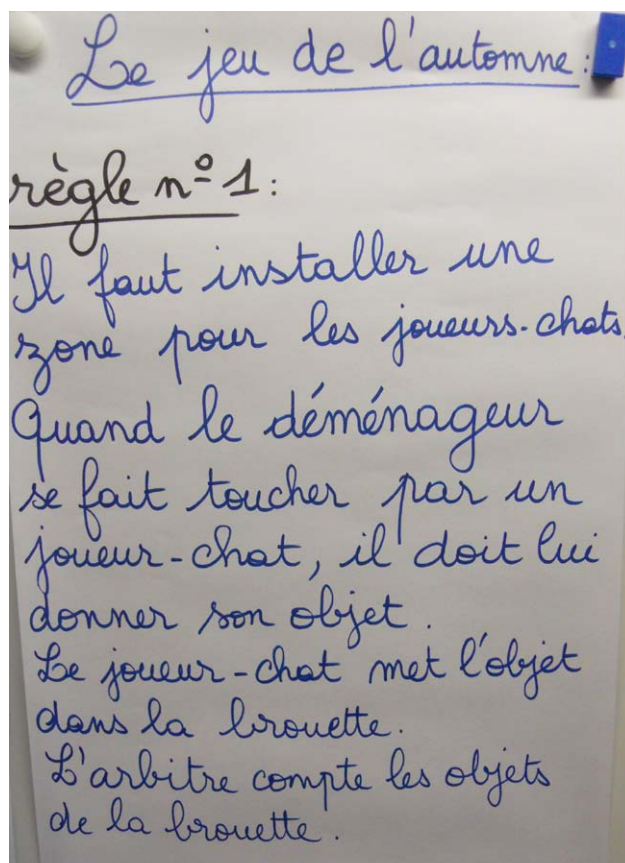 Le jeu de l'automne:
règle nº 1:
Il faut installer une
zone pour les joueurs-chats.
Quand le déménageur
se fait toucher par un
joueur-chat, il doit lui
donner son objet.
Le joueur-chat met l'objet
dans la brouette.
L'arbitre compte les objets
de la brouette.